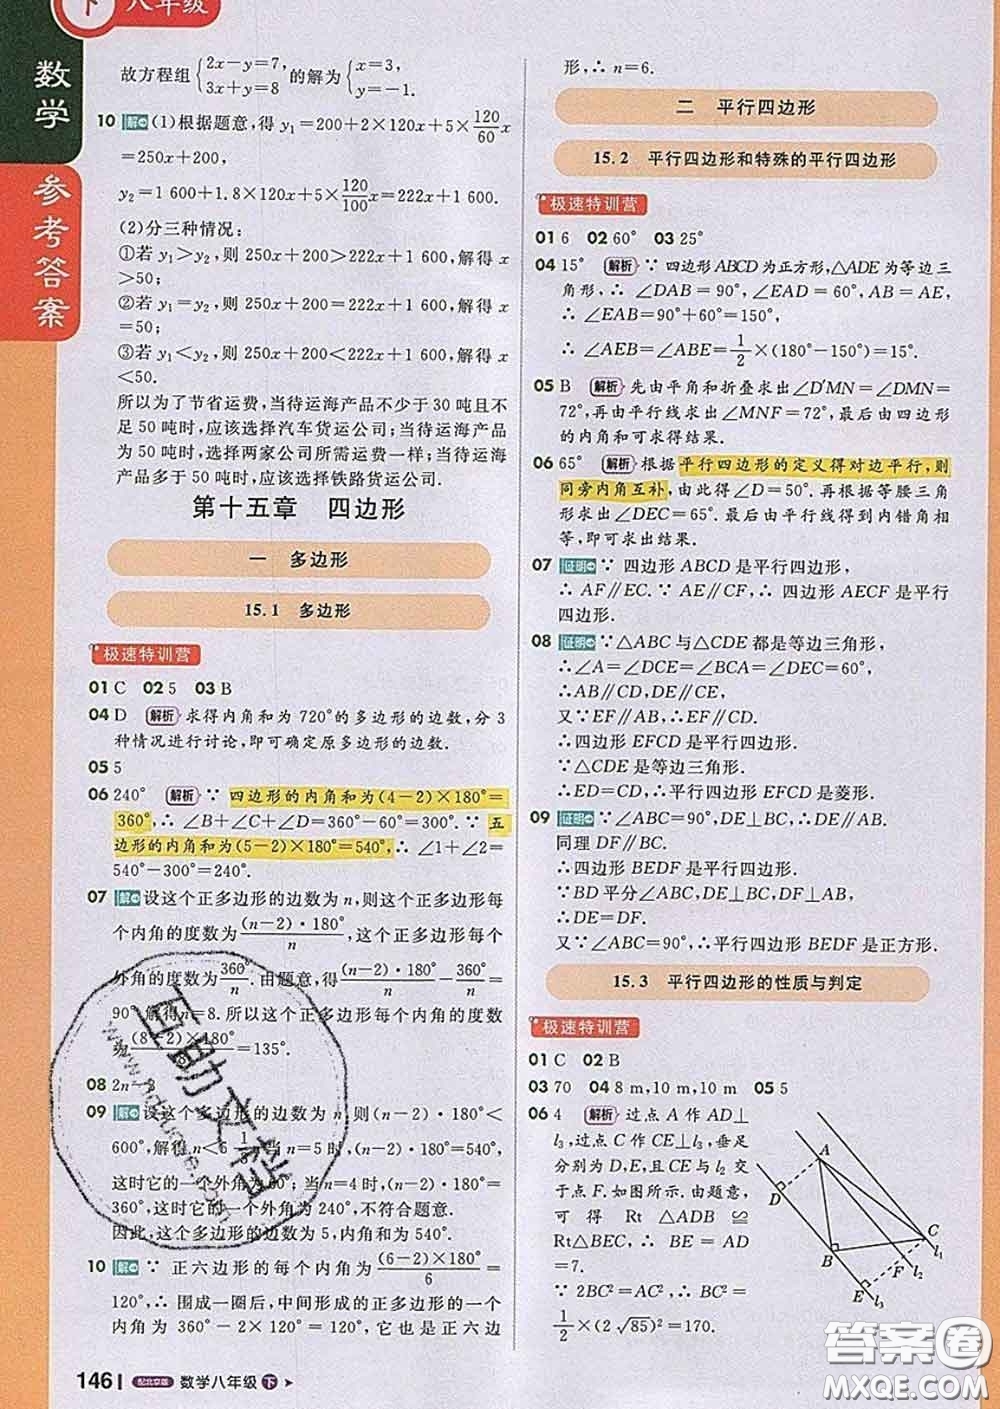 下 八年级
数学
参考答案
故方程组{2x-y=7, 3x+y=8 的解为{x=3, y=-1.
10 解 (1)根据题意,得 y₁=200+2×120x+5×120/60x
=250x+200,
y₂=1 600+1.8×120x+5×120/100x=222x+1 600.
(2)分三种情况:
①若 y₁>y₂,则 250x+200>222x+1 600,解得 x
>50;
②若 y₁=y₂,则 250x+200=222x+1 600,解得 x
=50;
③若 y₁<y₂,则 250x+200<222x+1 600,解得 x
<50.
所以为了节省运费,当待运海产品不少于 30 吨且不
足 50 吨时,应该选择汽车货运公司;当待运海产品
为 50 吨时,选择两家公司所需运费一样;当待运海
产品多于 50 吨时,应该选择铁路货运公司.
第十五章 四边形
一 多边形
15.1 多边形
极速特训营
01 C 02 5 03 B
04 D 解析 求得内角和为 720°的多边形的边数,分 3
种情况进行讨论,即可确定原多边形的边数.
05 5
06 240° 解析 ∵ 四边形的内角和为(4-2)×180°=
360°,∴ ∠B+∠C+∠D=360°-60°=300°.∵ 五
边形的内角和为(5-2)×180°=540°,∴ ∠1+∠2=
540°-300°=240°.
07 解 设这个正多边形的边数为 n,则这个正多边形每
个内角的度数为(n-2)·180°/n,这个正多边形每个
外角的度数为360°/n.由题意,得(n-2)·180°/n-360°/n=
90°,解得n=8.所以这个正多边形每个内角的度数
为(8-2)×180°/8=135°.
08 2n-3
09 解 设这个多边形的边数为 n,则(n-2)·180°<
600°,解得 n<5 1/3.当 n=5 时,(n-2)·180°=540°,
这时它的一个外角为60°;当 n=4 时,(n-2)·180°=
360°,这时它的一个外角为 240°,不符合题意.
因此,这个多边形的边数为 5,内角和为 540°.
10 解 ∵ 正六边形的每个内角为(6-2)×180°/6=
120°,∴ 围成一圈后,中间形成的正多边形的一个
内角为 360°-2×120°=120°,它也是正六边
形,∴ n=6.
二 平行四边形
15.2 平行四边形和特殊的平行四边形
极速特训营
01 6 02 60° 03 25°
04 15° 解析 ∵ 四边形 ABCD 为正方形,△ADE 为等边三
角形,∴ ∠DAB=90°,∠EAD=60°,AB=AE,
∴ ∠EAB=90°+60°=150°,
∴ ∠AEB=∠ABE=1/2×(180°-150°)=15°.
05 B 解析 先由平角和折叠求出∠D′MN=∠DMN=
72°,再由平行线求出∠MNF=72°,最后由四边形
的内角和可求得结果.
06 65° 解析 根据平行四边形的定义得对边平行,则
同旁内角互补,由此得∠D=50°.再根据等腰三角
形求出∠DEC=65°.最后由平行线得到内错角相
等,即可求出结果.
07 证明 ∵ 四边形 ABCD 是平行四边形,
∴ AF∥EC.∵ AE∥CF,∴ 四边形 AECF 是平行
四边形.
08 证明 ∵△ABC 与△CDE 都是等边三角形,
∴∠A=∠DCE=∠BCA=∠DEC=60°,
∴AB∥CD,DE∥CE,
又∵EF∥AB,∴EF∥CD.
∴四边形 EFCD 是平行四边形.
∵△CDE 是等边三角形.
∴ED=CD,∴平行四边形 EFCD 是菱形.
09 证明 ∵∠ABC=90°,DE⊥BC,∴DE∥AB.
同理 DF∥BC.
∴四边形 BEDF 是平行四边形.
∵BD 平分∠ABC,DE⊥BC,DF⊥AB,
∴DE=DF.
又∵∠ABC=90°,∴平行四边形 BEDF 是正方形.
15.3 平行四边形的性质与判定
极速特训营
01 C 02 B
03 70 04 8 m,10 m,10 m 05 5
06 4 解析 过点 A 作 AD⊥
l₃,过点 C 作 CE⊥l₃,垂足
分别为 D,E,且 CE 与 l₂ 交
于点 F.如图所示.由题意,
可得 Rt △ADB ≌
Rt△BEC,∴ BE=AD
=7.
∵ 2BC²=AC²,∴ BC²=
1/2×(2√85)²=170.
A
D
B
C
F
E
l₁
l₂
l₃
146 配北京版 数学八年级 下
互助文档
答案圈
MXQE.COM